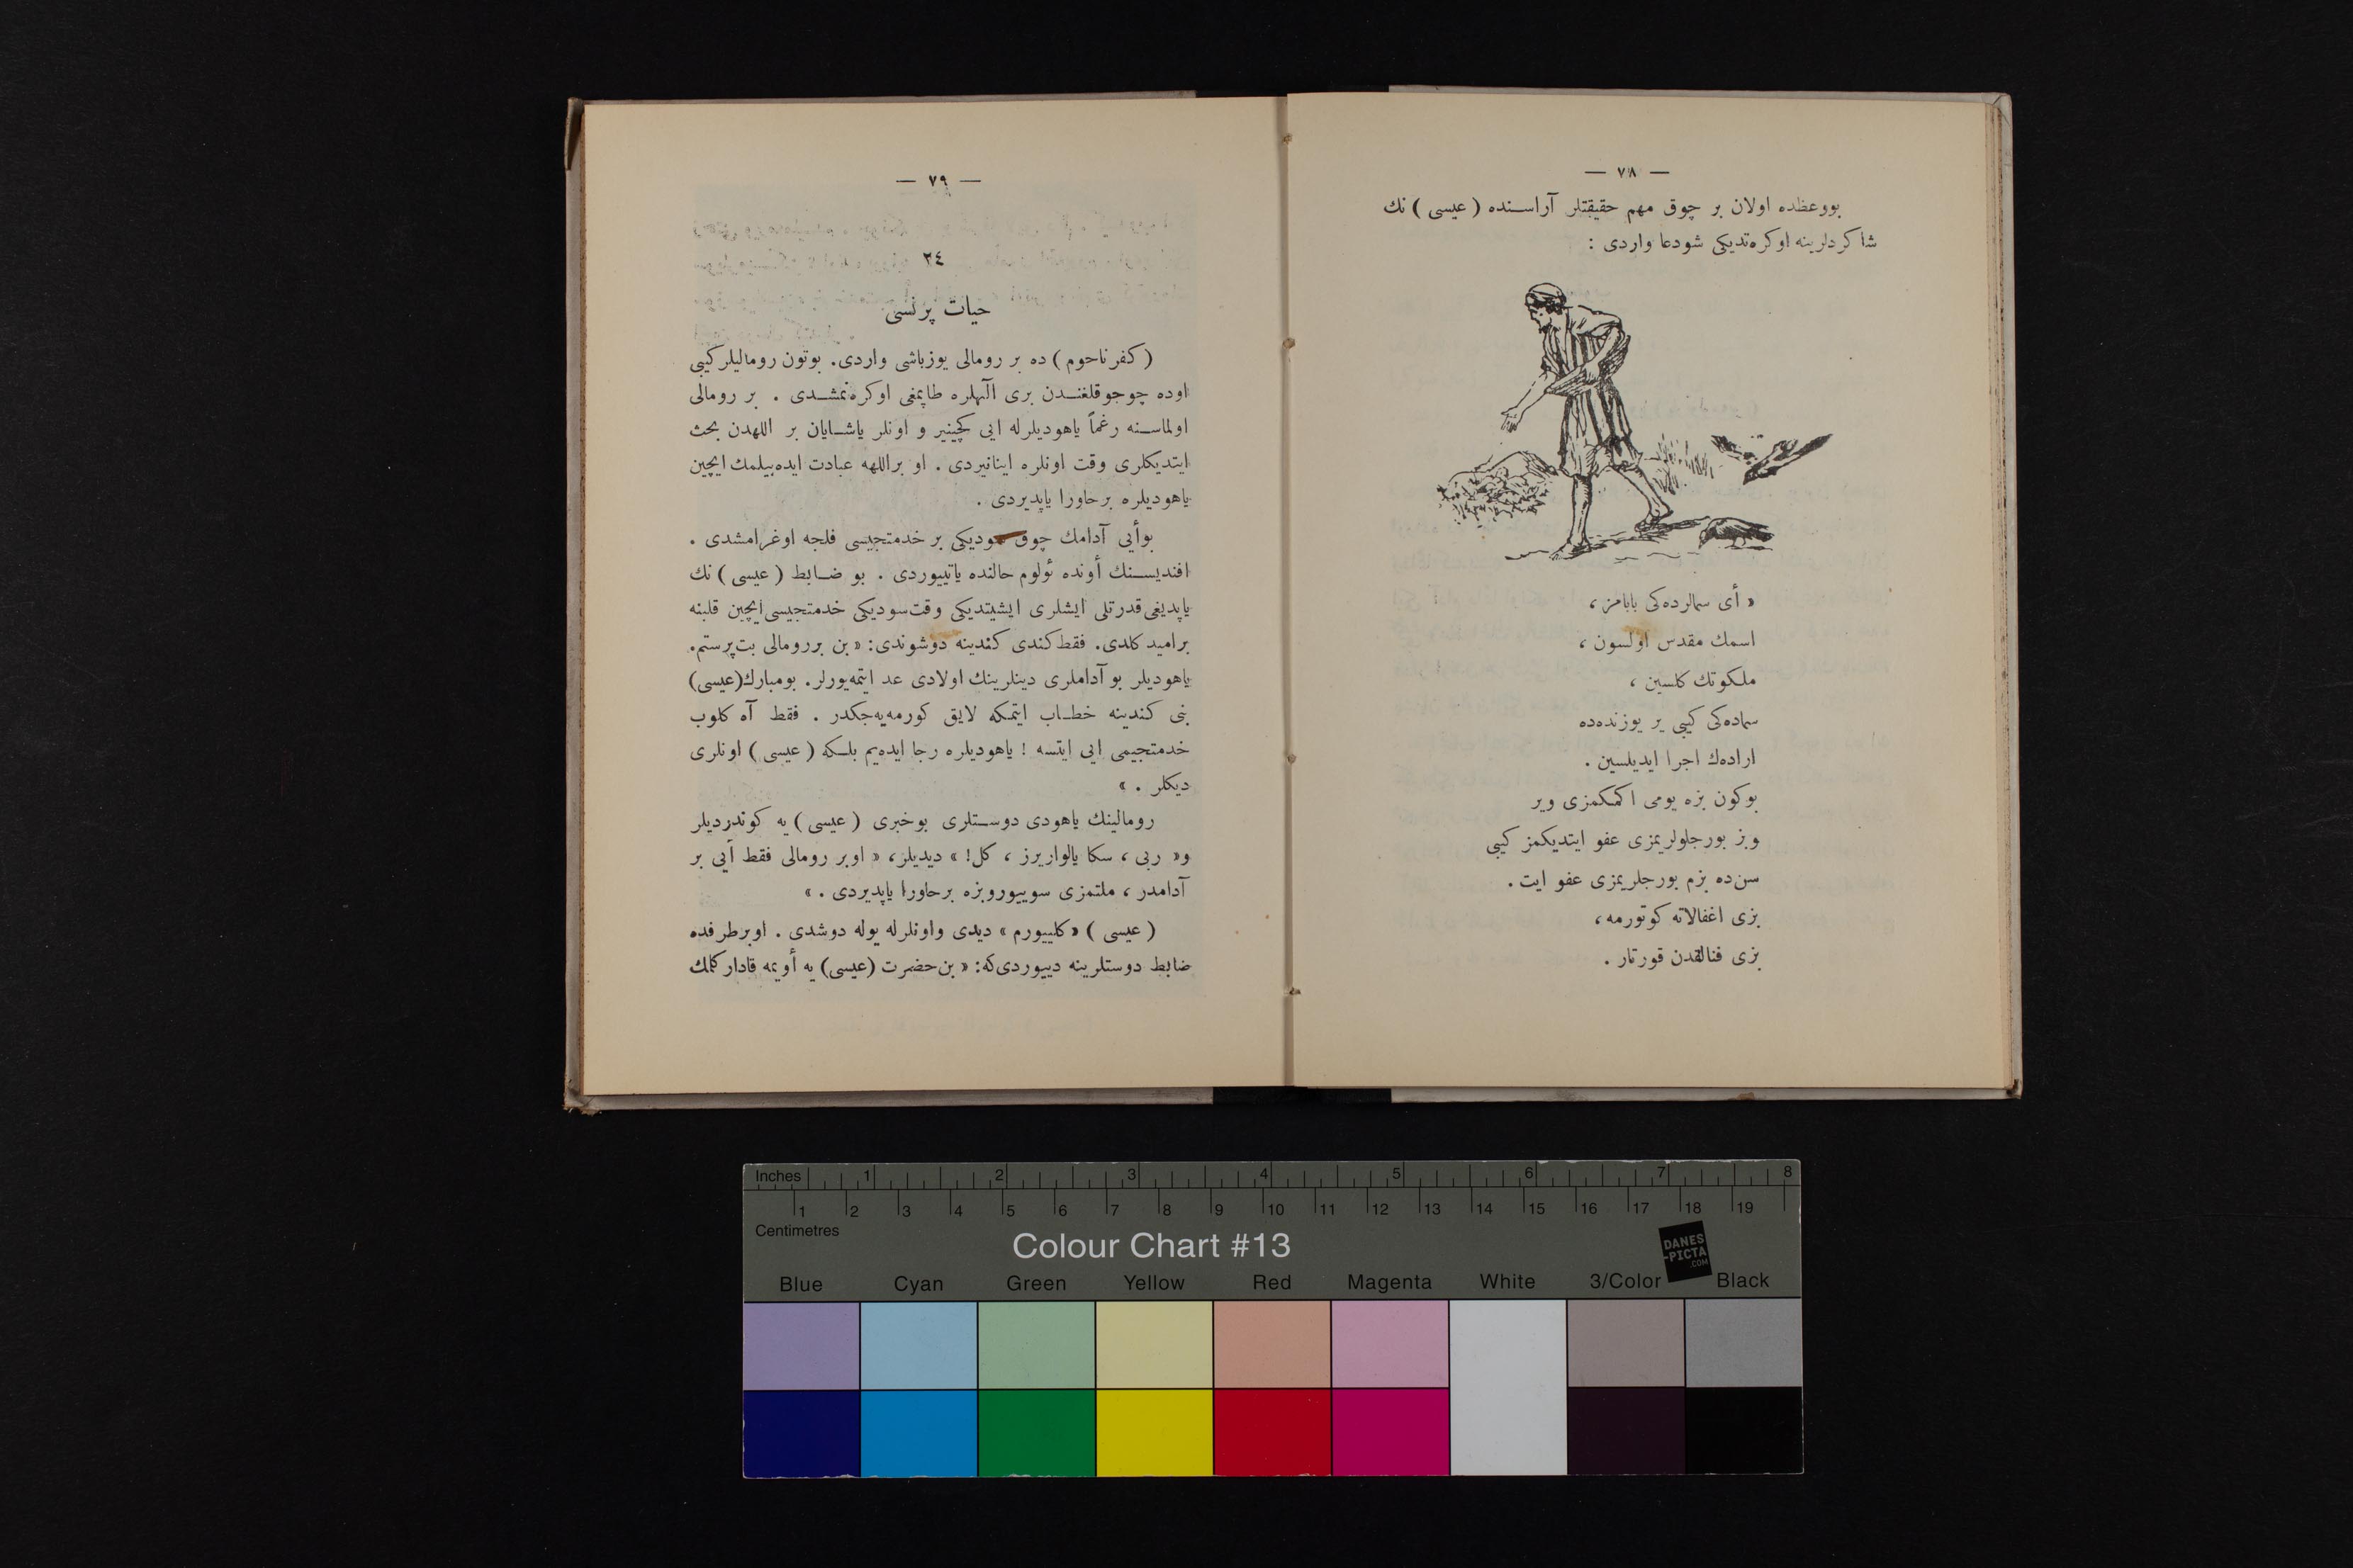 — ٧٨ —
بووعظده اولان بر چوق مهم حقيقتلر آراسنده ( عيسى ) نك
شاكردلرينه اوكره‌تديكى شودعا واردى :
« أى سمالرده‌كى بابامز ،
اسمك مقدس اولسون ،
ملكوتك كلسين ،
سماده‌كى كيبى ير يوزنده‌ده
اراده‌ك اجرا ايديلسين .
بوكون بزه يومى اكمكمزى وير
وبز بورجلولريمزى عفو ايتديكمز كيبى
سن‌ده بزم بورجلريمزى عفو ايت .
بزى اغفالاته كوتورمه ،
بزى فنالقدن قورتار .
— ٧٩ —
٢٤
حيات پرنسى
( كفرناحوم ) ده بر رومالى يوزباشى واردى. بوتون روماليلر كيبى
اوده چوجوقلغندن برى الٓهلره طاپمغى اوكره‌نمشدى . بر رومالى
اولماسنه رغماً ياهوديلرله ايى كچينير و اونلر ياشايان بر اللهدن بحث
ايتديكلرى وقت اونلره اينانيردى . او براللهه عبادت ايده‌بيلمك ايچين
ياهوديلره برحاورا ياپديردى .
بوأيى آدامك چوق سوديكى بر خدمتجيسى فلجه اوغرامشدى .
افنديسنك أونده ئولوم حالنده ياتييوردى . بو ضابط ( عيسى ) نك
ياپديغى قدرتلى ايشلرى ايشيتديكى وقت سوديكى خدمتجيسى ايچين قلبنه
براميد كلدى. فقط كندى كندينه دوشوندى: « بن بررومالى بت‌پرستم.
ياهوديلر بو آداملرى دينلرينك اولادى عد ايتمه‌يورلر. بومبارك (عيسى)
بنى كندينه خطاب ايتمكه لايق كورمه‌يه‌جكدر . فقط آه كلوب
خدمتجيمى ايى ايتسه ! ياهوديلره رجا ايده‌يم بلكه ( عيسى ) اونلرى
ديكلر . »
رومالينك ياهودى دوستلرى بوخبرى ( عيسى ) يه كوندرديلر
و« ربى ، سكا يالواريرز ، كل! » ديديلر، « اوبر رومالى فقط أيى بر
آدامدر ، ملتمزى سوييوروبزه برحاورا ياپديردى . »
( عيسى ) « كلييورم » ديدى واونلرله يوله دوشدى . اوبرطرفده
ضابط دوستلرينه دييوردى‌كه: « بن‌حضرت (عيسى) يه أويمه قادار كلمك
Inches 1 2 3 4 5 6 7 8
1 2 3 4 5 6 7 8 9 10 11 12 13 14 15 16 17 18 19
Centimetres
Colour Chart #13
DANES
-PICTA
.COM
Blue Cyan Green Yellow Red Magenta White 3/Color Black